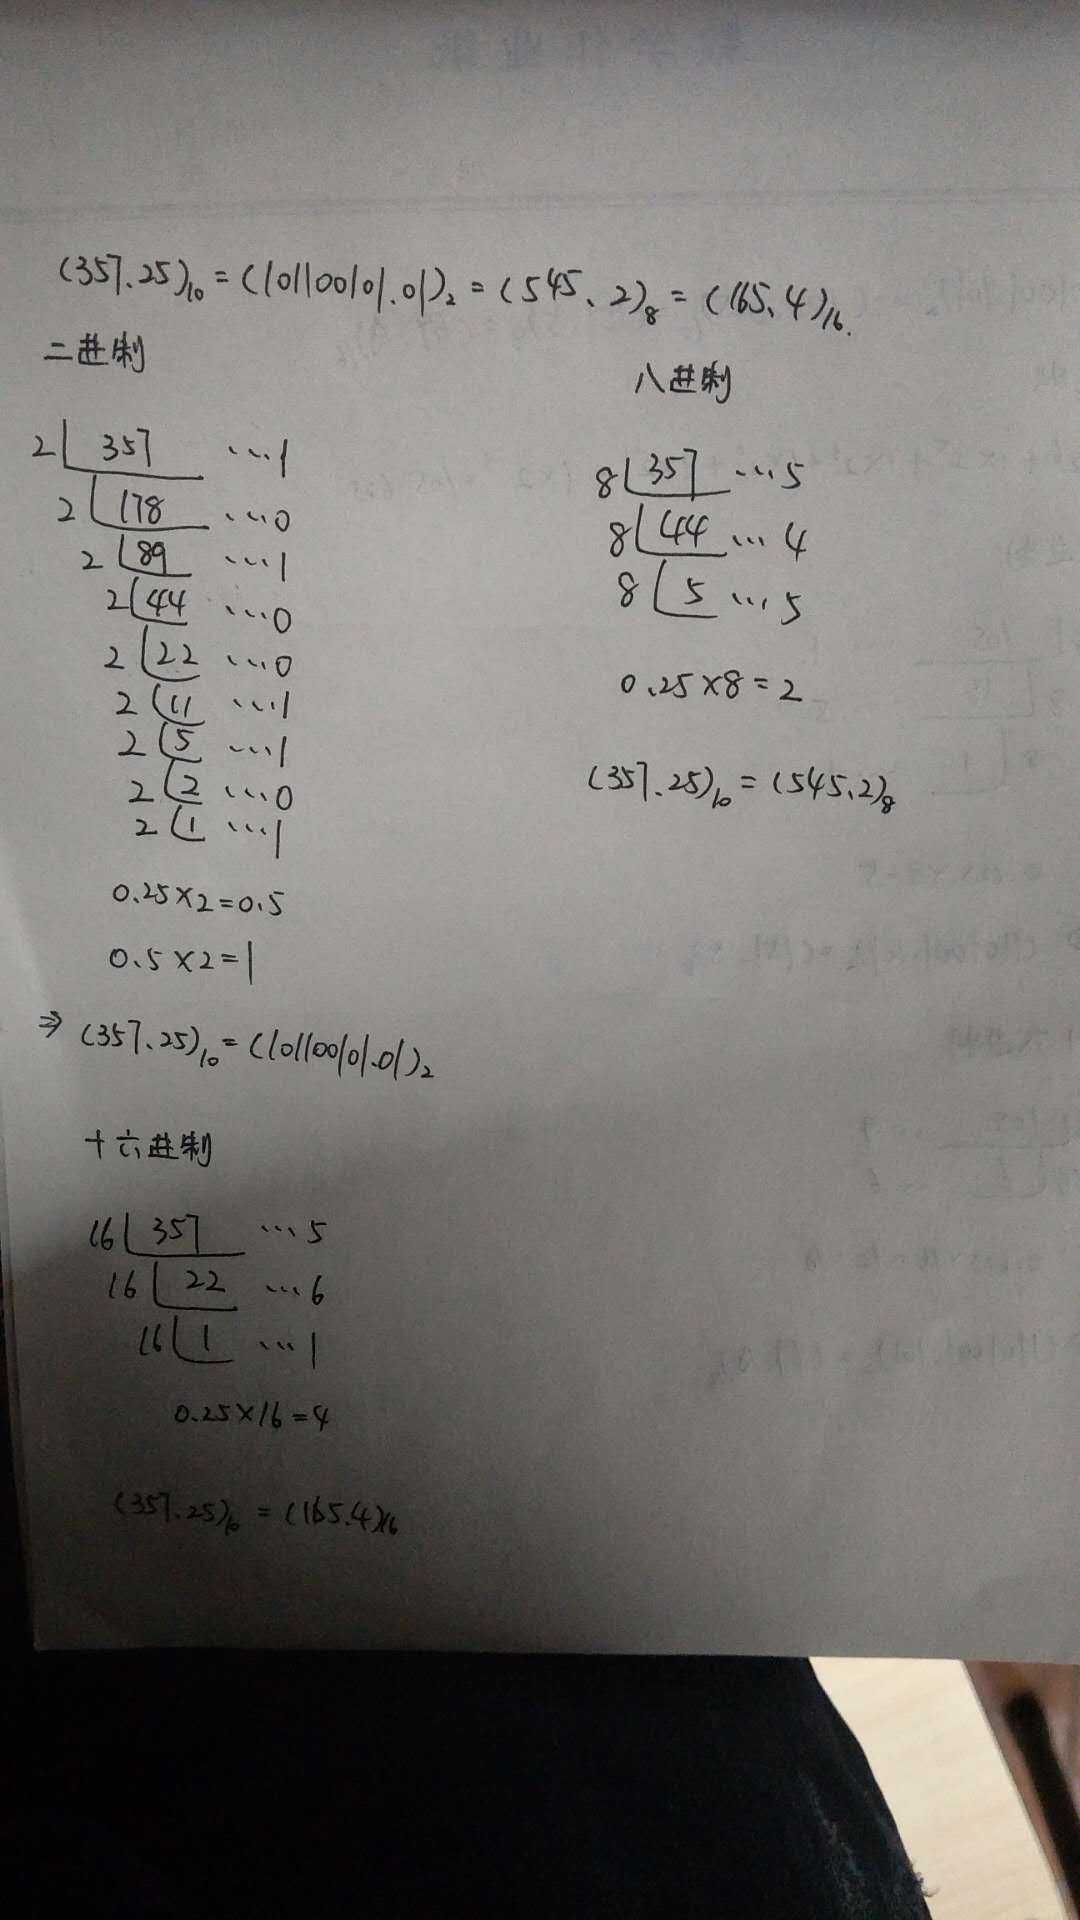 (357.25)₁₀ = (101100101.01)₂ = (545.2)₈ = (165.4)₁₆.
二进制
2 357 …1
2 178 …0
2 89 …1
2 44 …0
2 22 …0
2 11 …1
2 5 …1
2 2 …0
2 1 …1
0.25×2=0.5
0.5×2=1
⇒ (357.25)₁₀ = (101100101.01)₂
八进制
8 357 …5
8 44 …4
8 5 …5
0.25×8=2
(357.25)₁₀ = (545.2)₈
十六进制
16 357 …5
16 22 …6
16 1 …1
0.25×16=4
(357.25)₁₀ = (165.4)₁₆